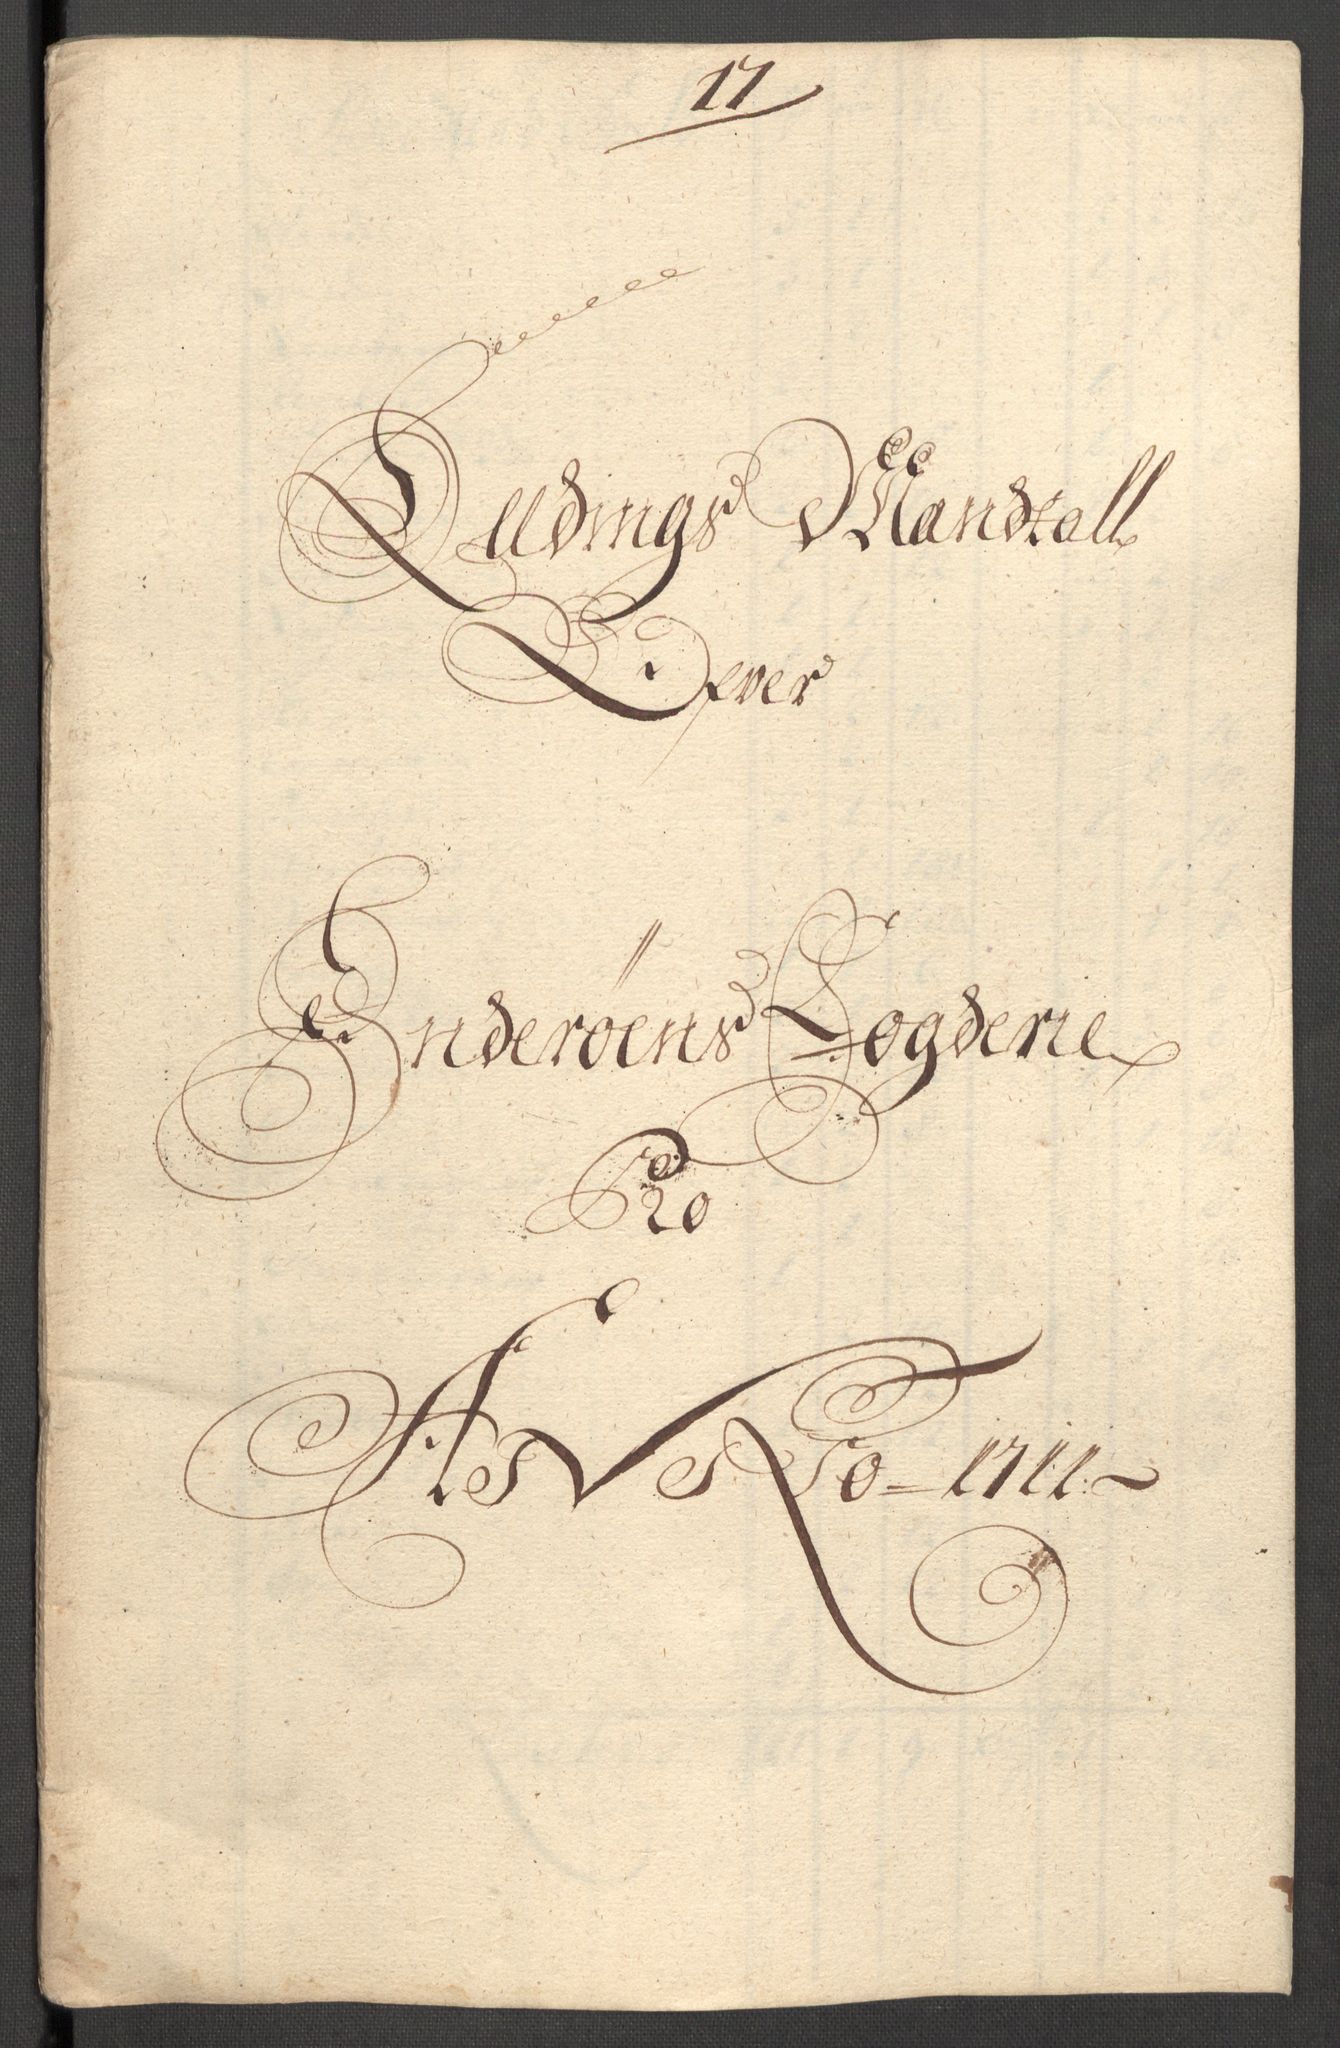 17
Leedings Mandtall
Ofver
Inderøens Fogderie
Pro
Anno 1711